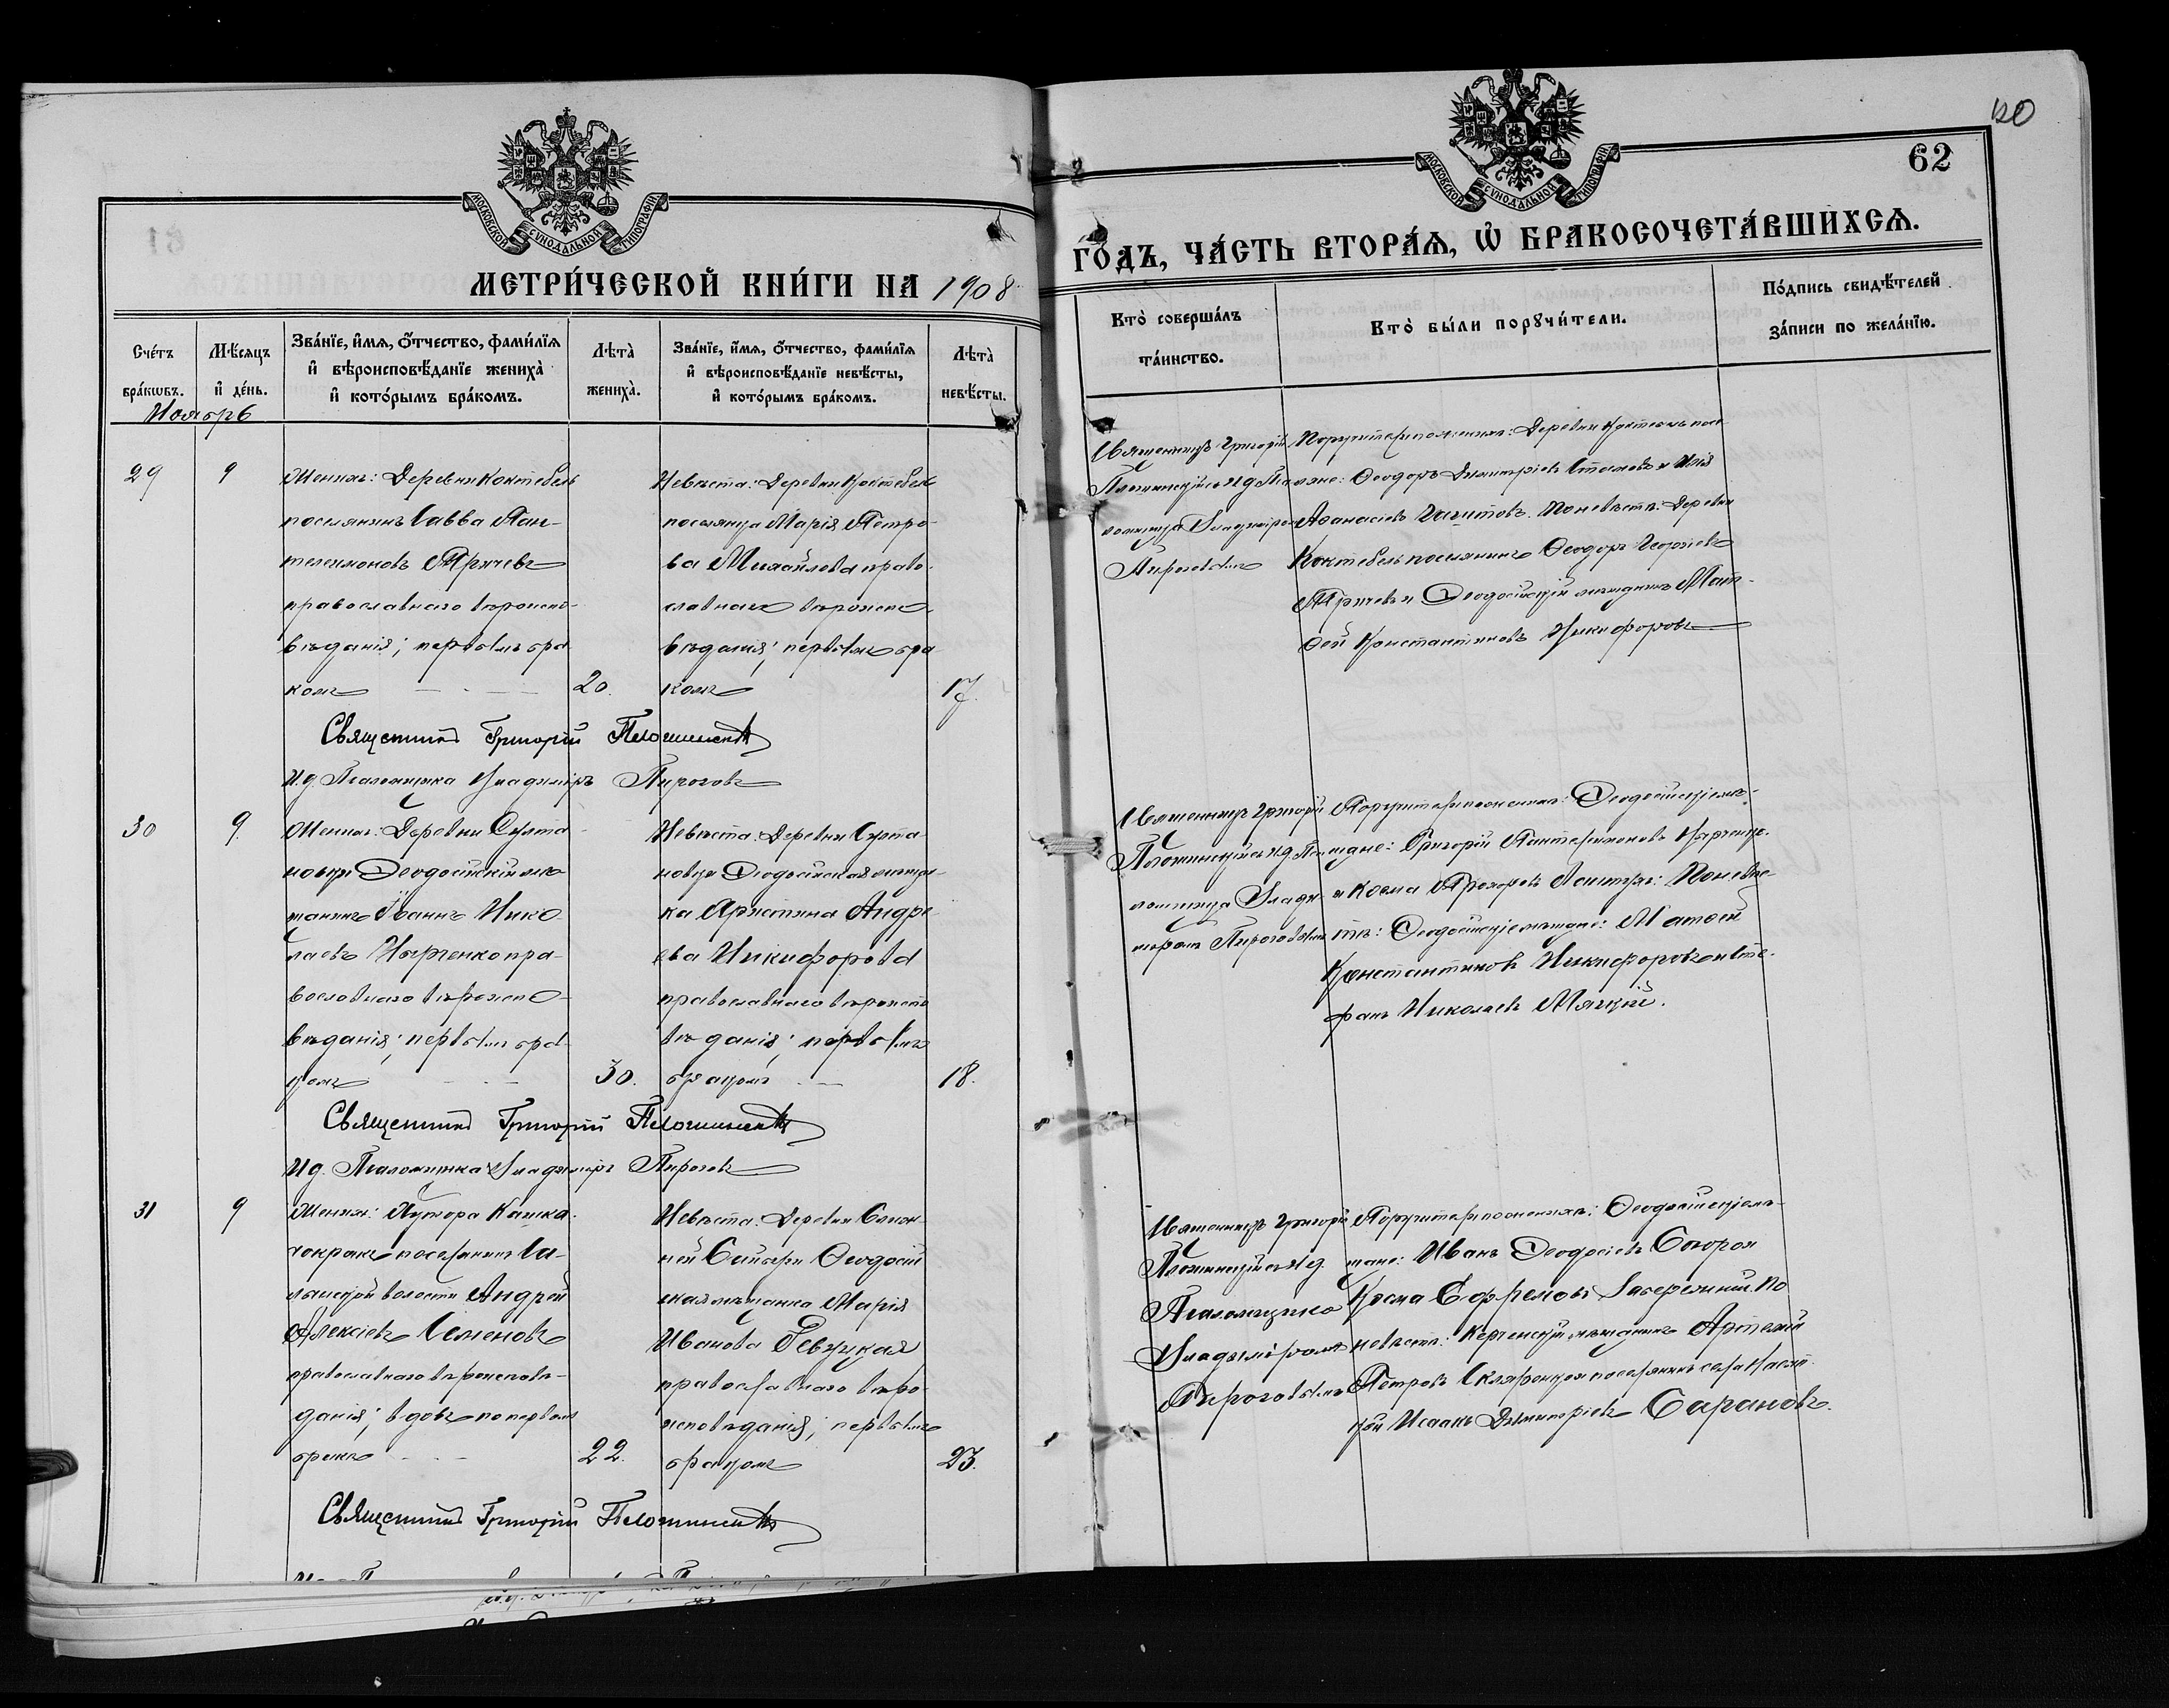 МОСКОВСКОЙ СѴНОДАЛЬНОЙ ТИПОГРАФІИ
МЕТРИ́ЧЕСКОЙ КНИ́ГИ НА 1908
Сче́тъ бра́кѡвъ.
Мѣ́сяцъ и҆ де́нь.
Зва́нїе, и҆́мѧ, ѻ҆́тчество, фами́лїѧ
и҆ вѣроисповѣ́данїе жениха̀
и҆ кото́рымъ бра́комъ.
Лѣта̀ жениха̀.
Зва́нїе, и҆́мѧ, ѻ҆́тчество, фами́лїѧ
и҆ вѣроисповѣ́данїе невѣ́сты,
и҆ кото́рымъ бра́комъ.
Лѣта̀ невѣ́сты.
Ноябрь
29
9
Женихъ: Деревни Коктебель
поселянинъ Савва Пан-
телеимоновъ
православнаго вѣроиспо-
вѣданія; первымъ бра
комъ
20.
Невѣста: Деревни Коктебель
поселянка Марія Петро-
ва Михайлова право-
славнаго вѣроиспо-
вѣданія; первымъ бра
комъ
17.
Священникъ Григорій
И.д. Псаломщика Владиміръ Пироговъ
30
9.
Женихъ: Деревни Султа
новки Ѳеодосійскій мѣ
щанинъ Иванъ Нико
лаевъ пра-
вославнаго вѣроиспо-
вѣданія; первымъ бра
комъ
30.
Невѣста: Деревни Султа
новки Ѳеодосійская мѣщан-
ка Христина Андре
ева Никифорова
православнаго вѣроиспо
вѣданія; первымъ
бракомъ
18.
Священникъ Григорій
И.д. Псаломщика Владиміръ Пироговъ
31
9
Женихъ: Хутора
поселянинъ Са-
волости Андрей
Алексіевъ Семеновъ
православнаго вѣроисповѣ-
данія; вдовъ по первомъ
бракѣ
22.
Невѣста: Деревни
ней Ѳеодосій
ская мѣщанка Марія
Иванова Левицкая
православнаго вѣро-
исповѣданія; первымъ
бракомъ
23.
Священникъ Григорій
120
62
МОСКОВСКОЙ СѴНОДАЛЬНОЙ ТИПОГРАФІИ
ГО́ДЪ, ЧА́СТЬ ВТОРА́Ѧ, Ѡ҆ БРАКОСОЧЕТА́ВШИХСѦ.
Кто̀ соверша́лъ
та́инство.
Кто̀ бы́ли порꙋчи́тели.
По́дпись свидѣ́телей
за́писи по жела́нїю.
Священникъ Григорій
и.д. Пса
ломщика Владиміромъ
Пироговымъ
Поручители по женихѣ: Деревни Коктебель посе
ляне: Ѳеодоръ Димитріевъ Стамовъ и Илія
Аѳанасіевъ По невѣстѣ: Деревни
Коктебель поселянинъ Ѳеодоръ Георгіевъ
и Ѳеодосійскій мѣщанинъ Мат-
ѳей Константиновъ Никифоровъ
Священникъ Григорій
и.д. Пса
ломщика Влади
міромъ Пироговымъ
Поручители по женихѣ: Ѳеодосійскіе мѣ-
щане: Григорій Пантелимоновъ
и Косма Прохоровъ По невѣ
стѣ: Ѳеодосійскіе мѣщане: Матѳей
Константиновъ Никифоровъ и Сте-
фанъ Николаевъ Мягкій.
Священникъ Григорій
и.д.
Псаломщика
Владиміромъ
Пироговымъ
Поручители по женихѣ: Ѳеодосійскіе мѣ-
щане: Иванъ Ѳеодосіевъ
Косма Ефремовъ По
невѣстѣ: Керченскій мѣщанинъ Артемій
Петровъ и поселянинъ села
Исаакъ Димитріевъ Сарановъ.